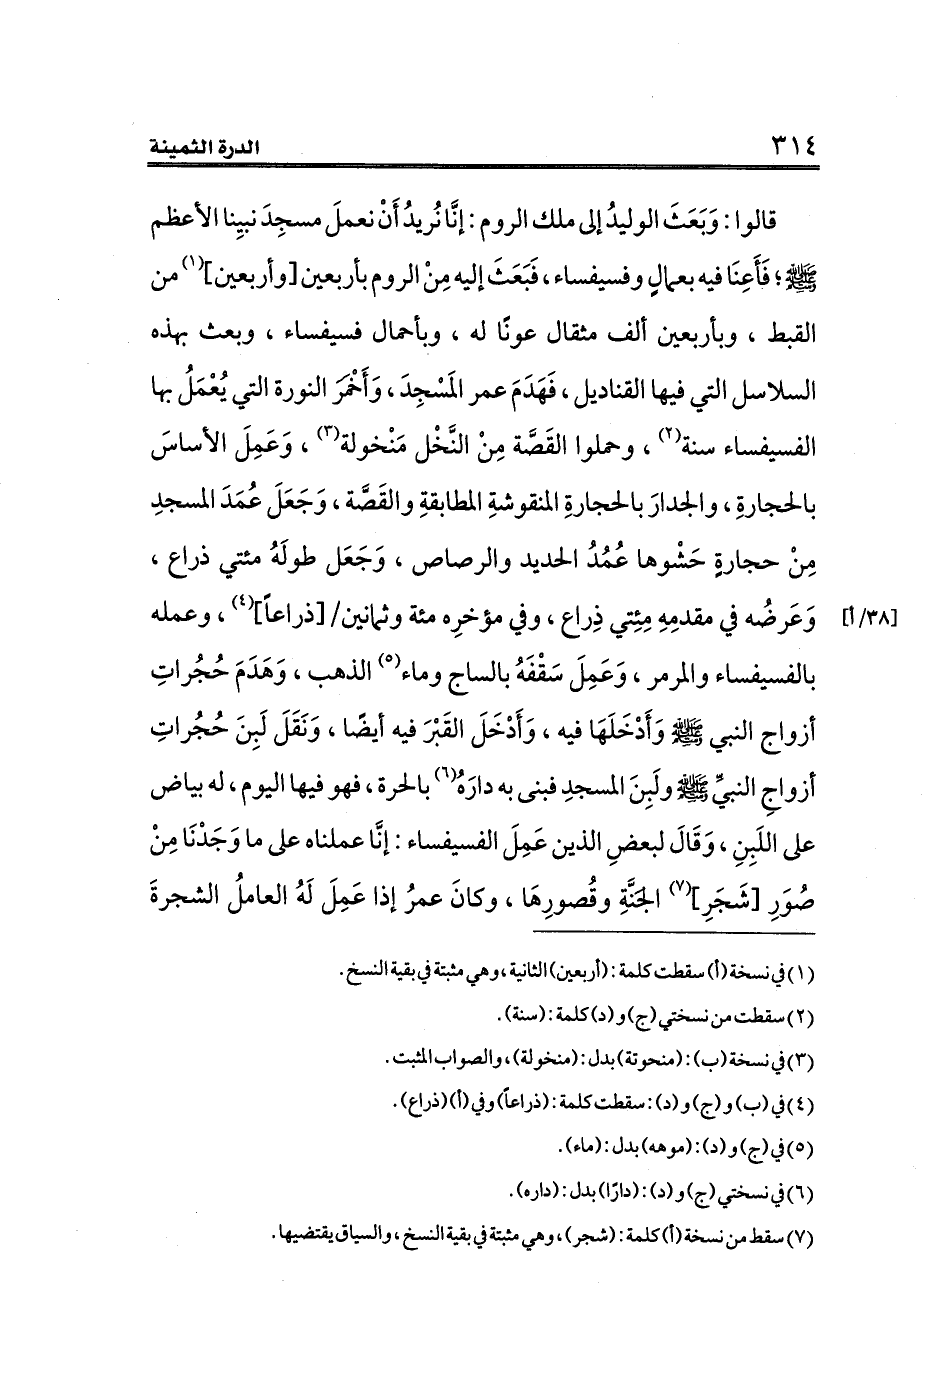 ٣١٤ الدرة الثمينة
قالوا : وَبَعَثَ الوليدُ إلى ملك الروم : إنَّا نُريدُ أَنْ نعملَ مسجِدَ نبيِنا الأعظم
ﷺ ؛ فَأَعِنَا فيه بعمالٍ وفسيفساء ، فَبَعَثَ إليه مِنْ الروم بأربعين [وأربعين](١) من
القبط ، وبأربعين ألف مثقال عونًا له ، وبأحمال فسيفساء ، وبعث بهذه
السلاسل التي فيها القناديل ، فَهَدَمَ عمر المَسْجِدَ ، وَأَخْمَرَ النورة التي يُعْمَلُ بها
الفسيفساء سنة(٢) ، وحملوا القَصَّة مِنْ النَّخْل مَنْخولة(٣) ، وَعَمِلَ الأساسَ
بالحجارةِ ، والجدارَ بالحجارةِ المنقوشةِ المطابقةِ والقَصَّة ، وَجَعَلَ عُمَدَ المسجدِ
مِنْ حجارةٍ حَشْوها عُمُدُ الحديد والرصاص ، وَجَعَل طولَهُ مئتي ذراع ،
وَعَرضُه في مقدمِهِ مِئِتي ذِراع ، وفي مؤخرِه مئة وثمانين/ [ذراعاً](٤) ، وعمله [٣٨/أ]
بالفسيفساء والمرمر ، وَعَمِلَ سَقْفَهُ بالساج وماء(٥) الذهب ، وَهَدَمَ حُجُراتِ
أزواج النبي ﷺ وَأَدْخَلَهَا فيه ، وَأَدْخَلَ القَبْرَ فيه أيضًا ، وَنَقَلَ لَبِنَ حُجُراتِ
أزواجِ النبيِّ ﷺ ولَبِنَ المسجدِ فبنى به دارَهُ(٦) بالحرة ، فهو فيها اليوم ، له بياض
على اللَبِنِ ، وَقَالَ لبعضِ الذين عَمِلَ الفسيفساء : إنَّا عملناه على ما وَجَدْنَا مِنْ
صُوَرِ [شَجَرِ](٧) الجَنَّةِ وقُصورِهَا ، وكانَ عمرُ إذا عَمِلَ لَهُ العاملُ الشجرةَ
(١) في نسخة (أ) سقطت كلمة : (أربعين) الثانية ، وهي مثبتة في بقية النسخ .
(٢) سقطت من نسختي (ج) و (د) كلمة : (سنة) .
(٣) في نسخة (ب) : (منحوتة) بدل : (منخولة) ، والصواب المثبت .
(٤) في (ب) و (ج) و (د) : سقطت كلمة : (ذراعاً) وفي (أ) (ذراع) .
(٥) في (ج) و (د) : (موهه) بدل : (ماء) .
(٦) في نسختي (ج) و (د) : (دارًا) بدل : (داره) .
(٧) سقط من نسخة (أ) كلمة : (شجر) ، وهي مثبتة في بقية النسخ ، والسياق يقتضيها .